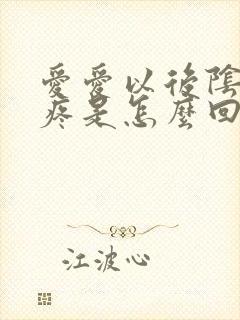 愛愛以後陰
疼是怎麼回
江波心